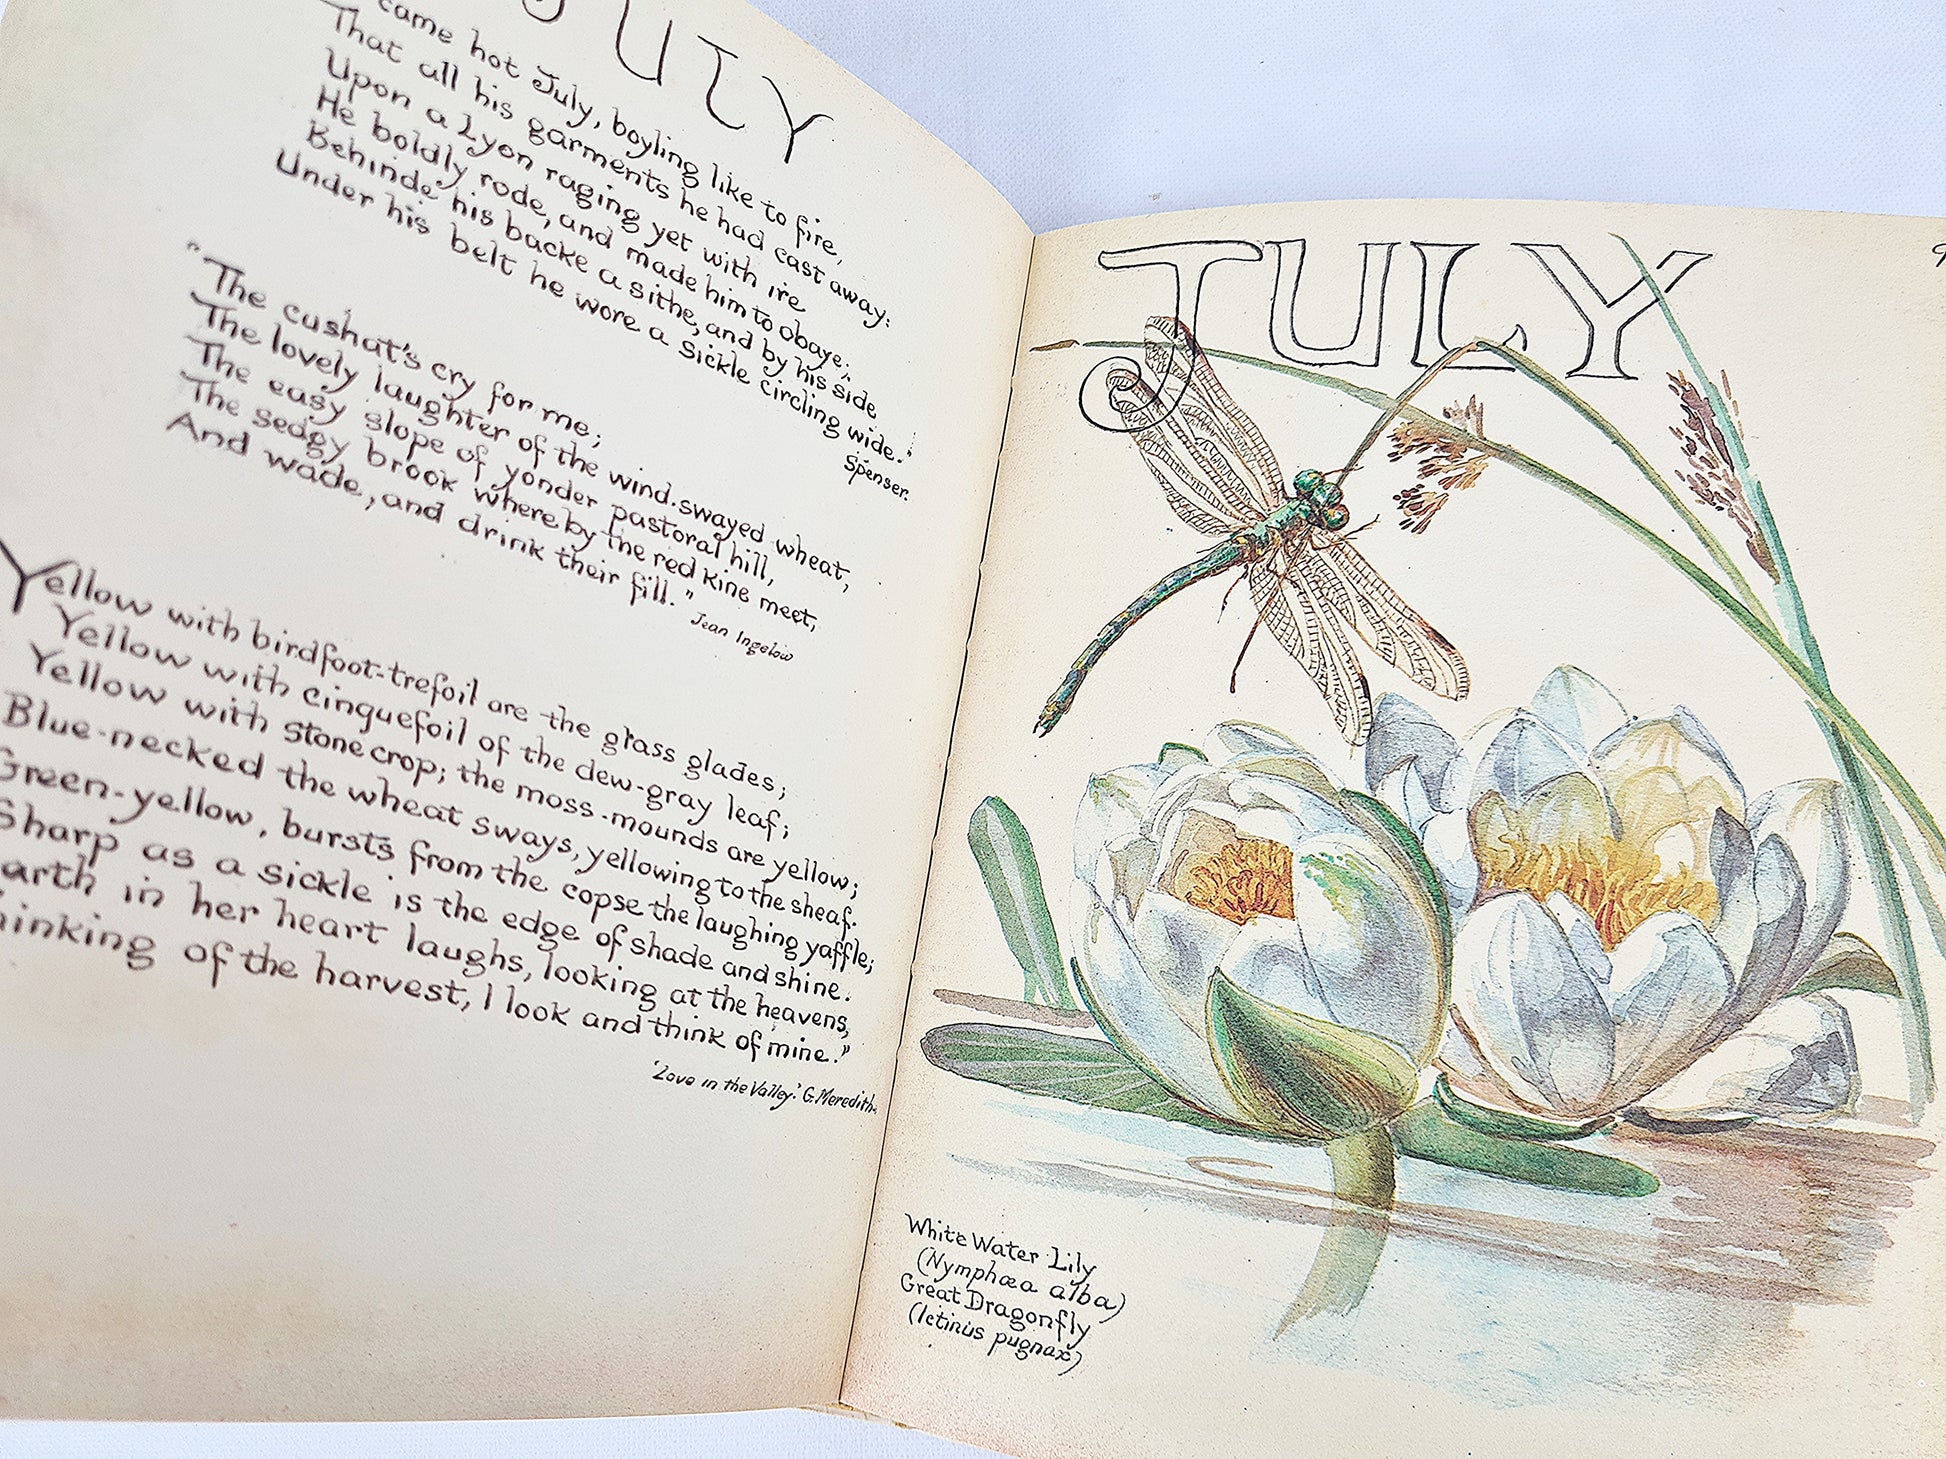 JULY
came hot July, boyling like to fire,
That all his garments he had cast away:
Upon a Lyon raging yet with ire
He boldly rode, and made him to obaye:
Behinde his backe a sithe, and by his side
Under his belt he wore a sickle circling wide."
Spenser.
"The cushat's cry for me;
The lovely laughter of the wind-swayed wheat,
The easy slope of yonder pastoral hill,
The sedgy brook whereby the red kine meet,
And wade, and drink their fill."
Jean Ingelow
Yellow with birdfoot-trefoil are the grass glades;
Yellow with cinquefoil of the dew-gray leaf;
Yellow with stonecrop; the moss-mounds are yellow;
Blue-necked the wheat sways, yellowing to the sheaf.
Green-yellow, bursts from the copse the laughing yaffle;
Sharp as a sickle is the edge of shade and shine.
arth in her heart laughs, looking at the heavens,
hinking of the harvest, I look and think of mine."
'Love in the Valley.' G. Meredith.
JULY
White Water Lily
(Nymphæa alba)
Great Dragonfly
(Ictinus pugnax)